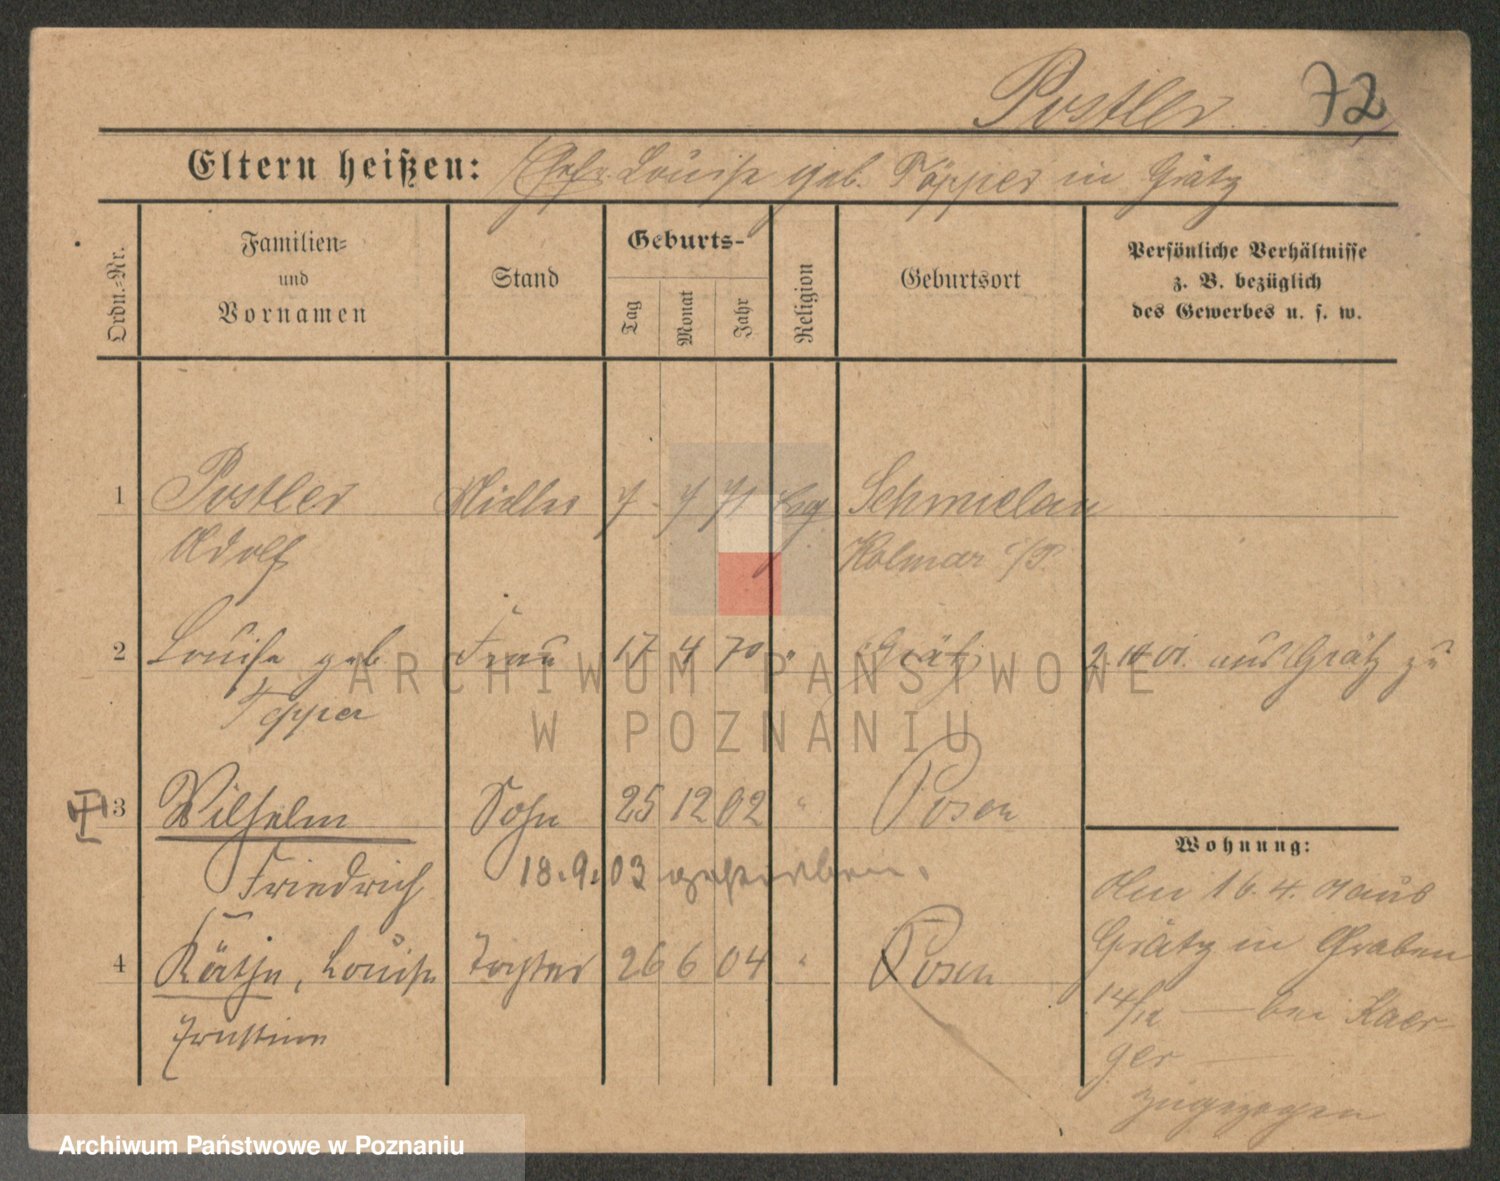 Postler. 72
Eltern heißen: Ehefr. Louise geb. Töpper in Grätz
Ordn.-Nr.
Familien-
und
Vornamen
Stand
Geburts-
Tag
Monat
Jahr
Religion
Geburtsort
Persönliche Verhältnisse
z. B. bezüglich
des Gewerbes u. s. w.
1 Postler 7. 7 71 Evg Schmielau
Adolf Kolmar i/P.
2 Louise geb Frau 17 4 70 " Grätz 2. 10 01. aus Grätz zu
Töpper
3 Wilhelm Sohn 25 12 02 " Posen
Friedrich 18.9.03 gestorben.
4 Käthe, Louise Tochter 26 6 04 " Posen
Ernstine
Wohnung:
Am 16. 4. 01 aus
Grätz in Graben
14/12 — bei Kaer-
ger —
zugezogen
ARCHIWUM PAŃSTWOWE
W POZNANIU
Archiwum Państwowe w Poznaniu